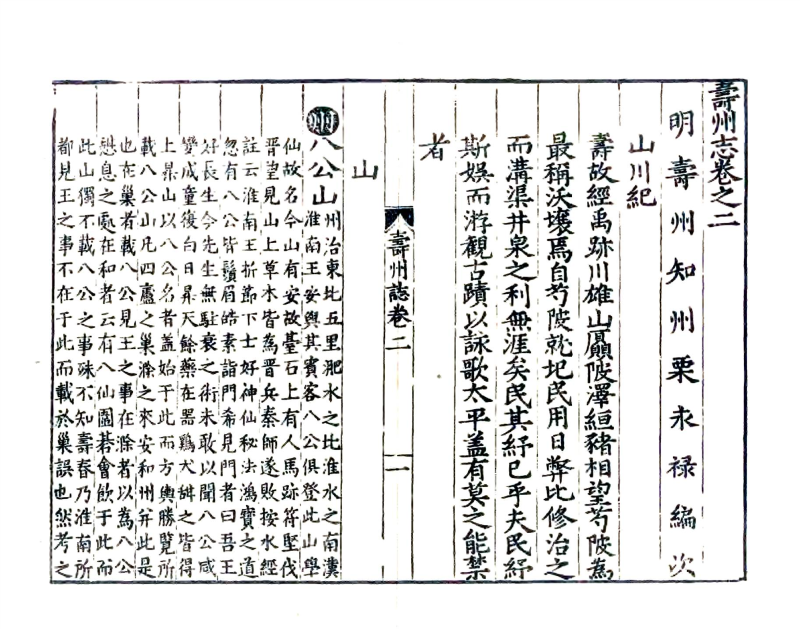 壽州志卷之二
明壽州知州栗永禄編次
山川紀
壽故經禹跡川雄山贔陂澤絙豬相望芍陂為
最稱沃壤焉自芍陂就圯民用日弊比修治之
而溝渠井泉之利無涯矣民其紓已乎夫民紓
斯娛而游觀古蹟以詠歌太平盖有莫之能禁
者
壽州誌卷二
一
山
州八公山
州治東北五里淝水之北淮水之南漢
淮南王安與其賓客八公俱登此山學
仙故名今山有安故臺石上有人馬跡符堅伐
晋望見山上草木皆為晋兵秦師遂敗按水經
註云淮南王折節下士好神仙秘法鴻寳之道
忽有八公皆鬚眉皓素詣門希見門者曰吾王
好長生今先生無駐衰之術未敢以聞八公咸
變成童復白日昇天餘藥在噐鷄犬䑛之皆得
上昇山以八公名者盖始于此而方輿勝覽所
載八公山凡四廬之巢滁之來安和州并此是
也在巢者載八公見王之事在滁者以為八公
憇息之處在和者云有八仙圖碁會飲于此而
此山獨不載八公之事殊不知壽春乃淮南所
都見王之事不在于此而載於巢誤也然考之